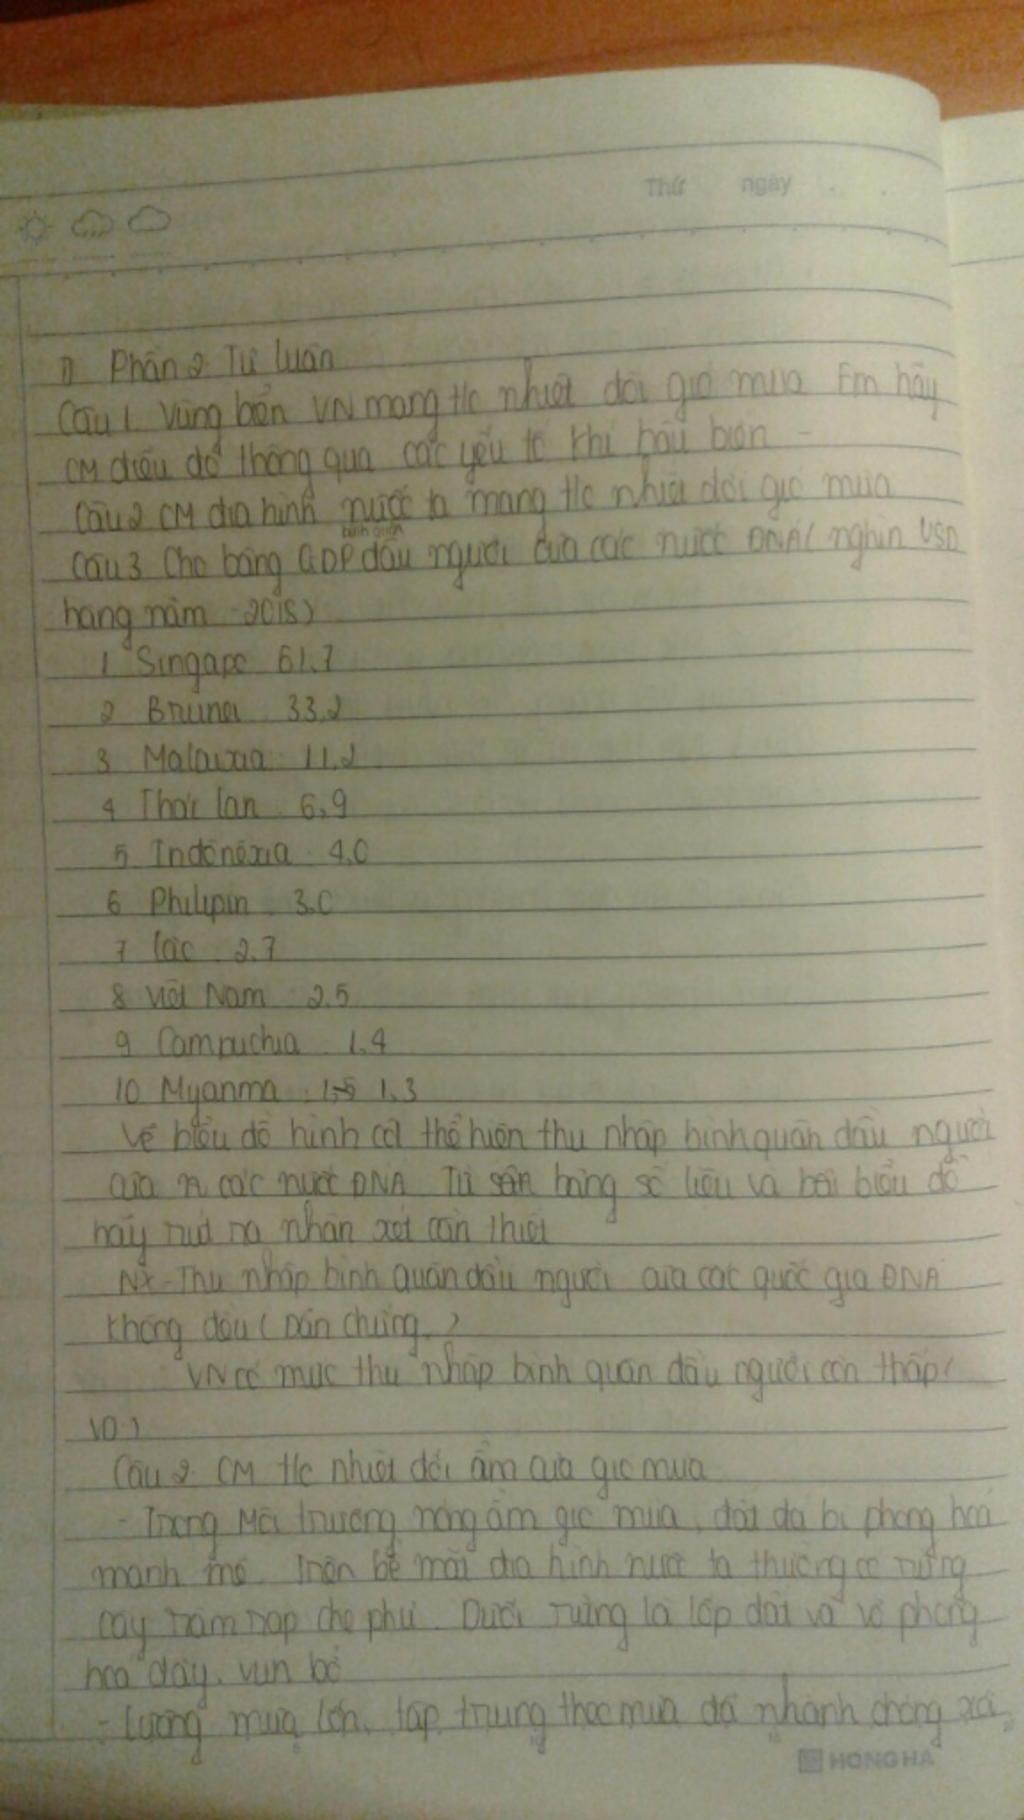 Thứ ngày
Phần 2 Tự luận
Câu 1 Vùng biển VN mang t/c nhiệt đới gió mùa Em hãy
CM điều đó thông qua các yếu tố khí hậu biển -
Câu 2 CM địa hình nước ta mang t/c nhiệt đới gió mùa
bình quân
Câu 3 Cho bảng GDP đầu người của các nước ĐNA ( nghìn USD
hàng năm 2018)
1 Singapo 61,7
2 Brunei 33,2
3 Malaixia 11,2
4 Thái lan 6,9
5 Indônêxia 4,0
6 Philipin 3,0
7 Lào 2,7
8 Việt Nam 2,5
9 Campuchia 1,4
10 Myanma : 1,3
Vẽ biểu đồ hình cột thể hiện thu nhập bình quân đầu người
của các nước ĐNA Từ bảng số liệu và biểu đồ
hãy rút ra nhận xét cần thiết
NX - Thu nhập bình quân đầu người của các quốc gia ĐNA
không đều ( Dẫn chứng )
VN có mức thu nhập bình quân đầu người còn thấp (
VD )
Câu 2 CM t/c nhiệt đới ẩm của gió mùa
- Trong Môi trường nóng ẩm gió mùa, đất đá bị phong hoá
mạnh mẽ. Trên bề mặt địa hình nước ta thường có rừng
cây rậm rạp che phủ. Dưới rừng là lớp đất và vỏ phong
hoá dày, vụn bở
- Lượng mưa lớn, tập trung theo mùa đã nhanh chóng xói
HONG HA